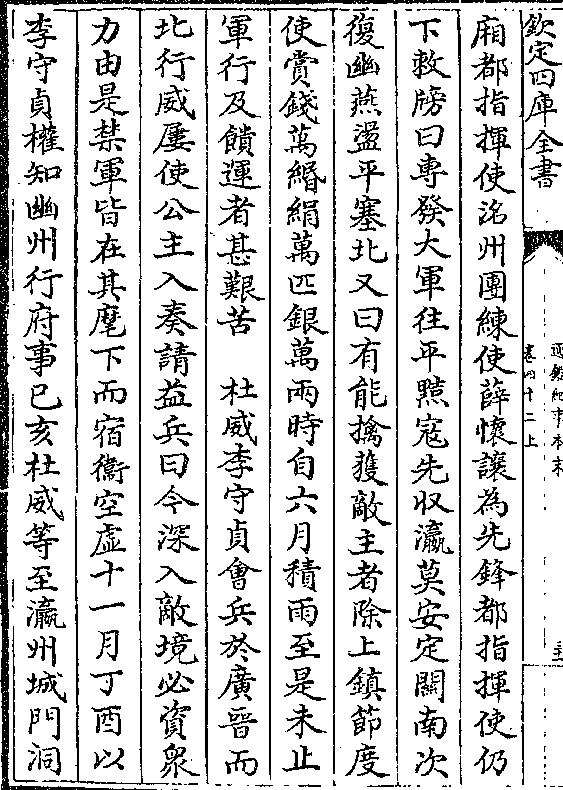 欽定四庫全書
通鑑紀事本末
卷四十二上
廂都指揮使洺州團練使薛懷讓為先鋒都指揮使仍
下敕牓曰專發大軍往平黠寇先收瀛莫安定關南次
復幽燕盪平塞北又曰有能擒獲敵主者除上鎮節度
使賞錢萬緡絹萬匹銀萬兩時自六月積雨至是未止
軍行及饋運者甚艱苦　杜威李守貞會兵於廣晉而
北行威屢使公主入奏請益兵曰今深入敵境必資衆
力由是禁軍皆在其麾下而宿衞空虛十一月丁酉以
李守貞權知幽州行府事已亥杜威等至瀛州城門洞